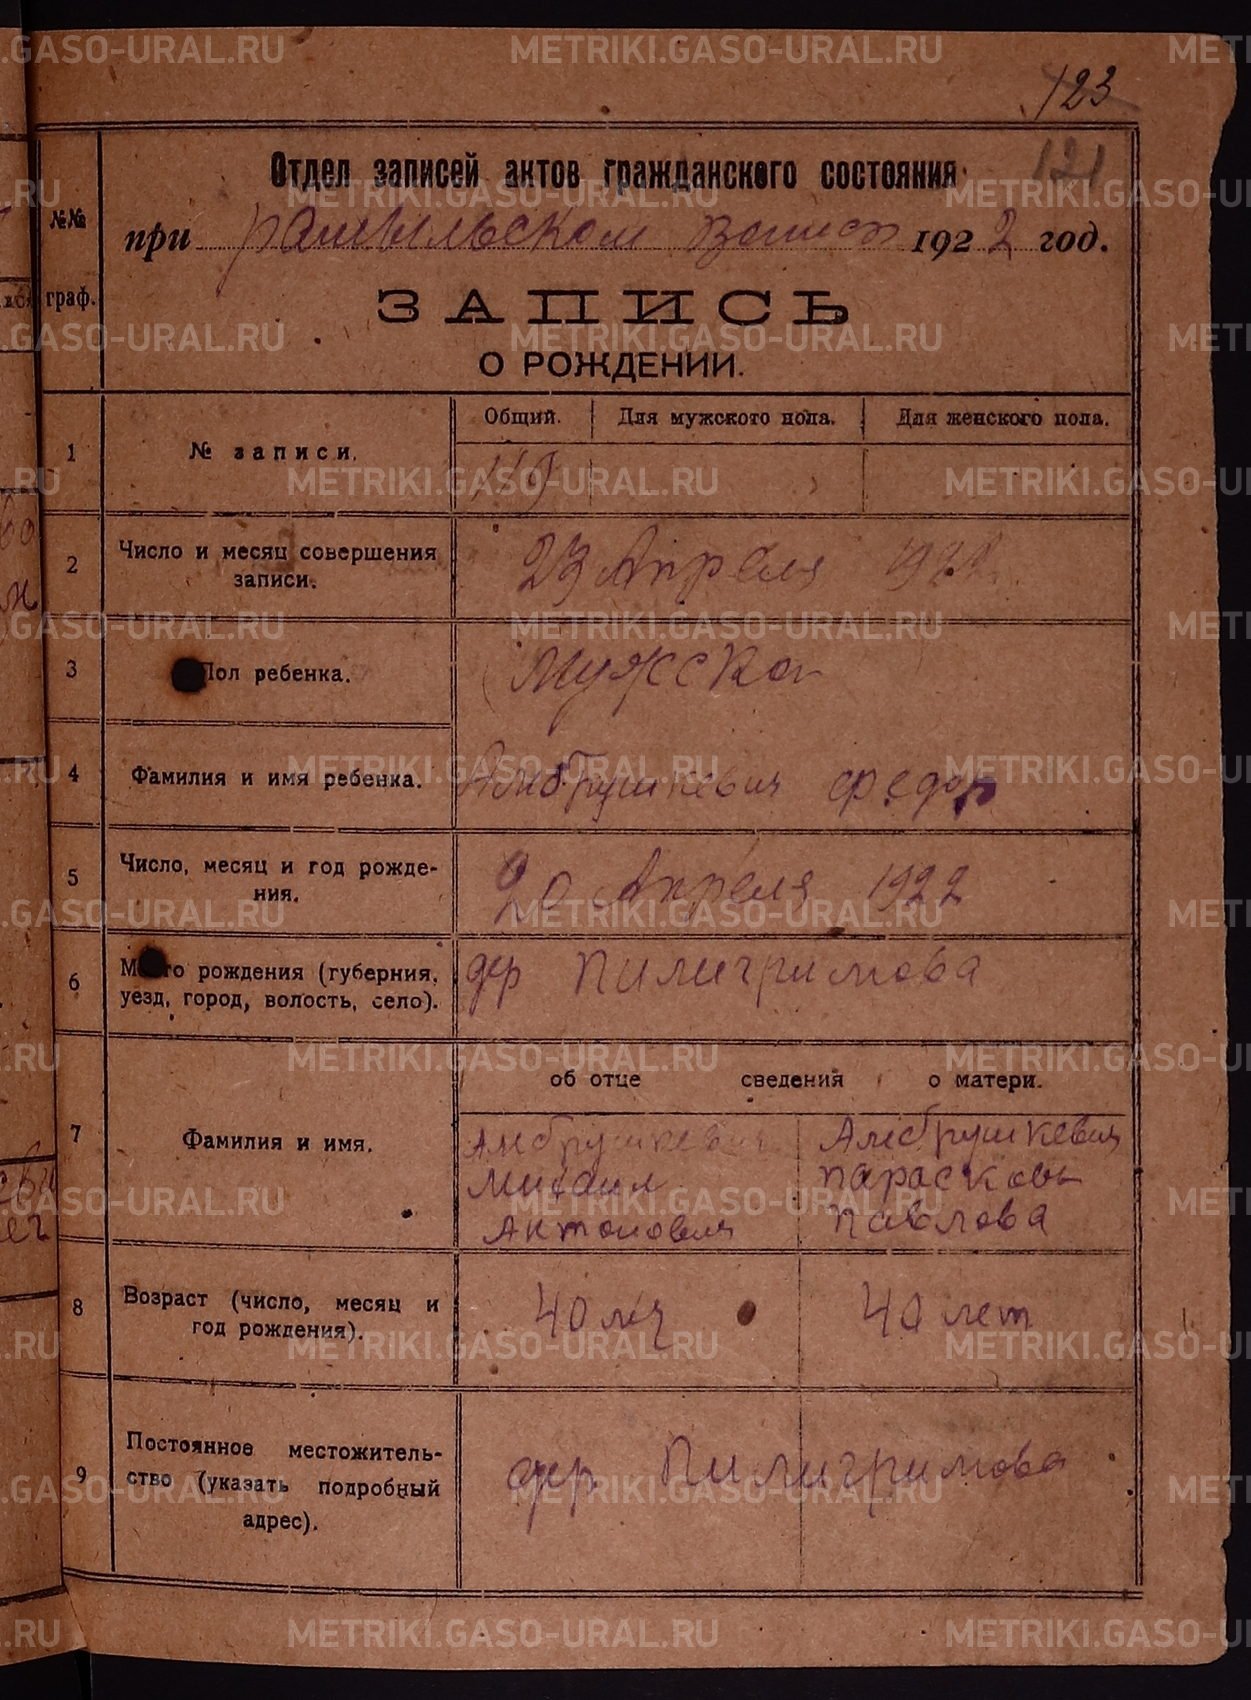 123
121
Отдел записей актов гражданского состояния
при Рамыльском волисп 1922 год.
№№
граф.
ЗАПИСЬ
О РОЖДЕНИИ.
Общий. Для мужского пола. Для женского пола.
1 № записи.
2 Число и месяц совершения
записи.
23 Апреля 1922
3 Пол ребенка. мужской
4 Фамилия и имя ребенка. Амбрушкевич Федор
5 Число, месяц и год рожде-
ния.
20 Апреля 1922
6 Место рождения (губерния,
уезд, город, волость, село).
дер Пилигримова
об отце сведения о матери.
7 Фамилия и имя.
Амбрушкевич
Михаил
Антонович
Амбрушкевич
Парасковь
Павлова
8 Возраст (число, месяц и
год рождения).
40 лет
40 лет
9 Постоянное местожитель-
ство (указать подробный
адрес).
дер. Пилигримова
METRIKI.GASO-URAL.RU